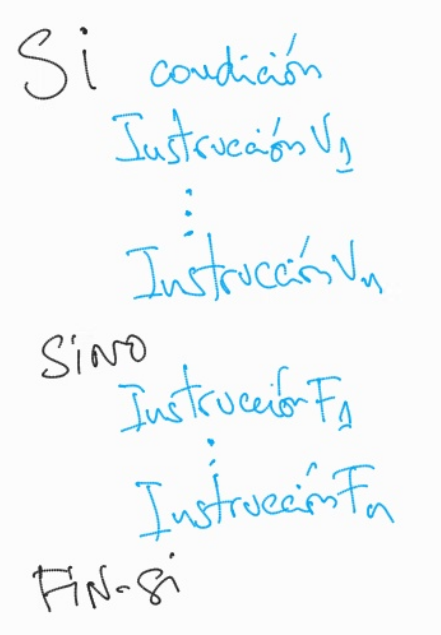 Si condición
Instrucción V1
⋮
Instrucción Vn
SiNO
Instrucción F1
⋮
Instrucción Fn
FiN-Si